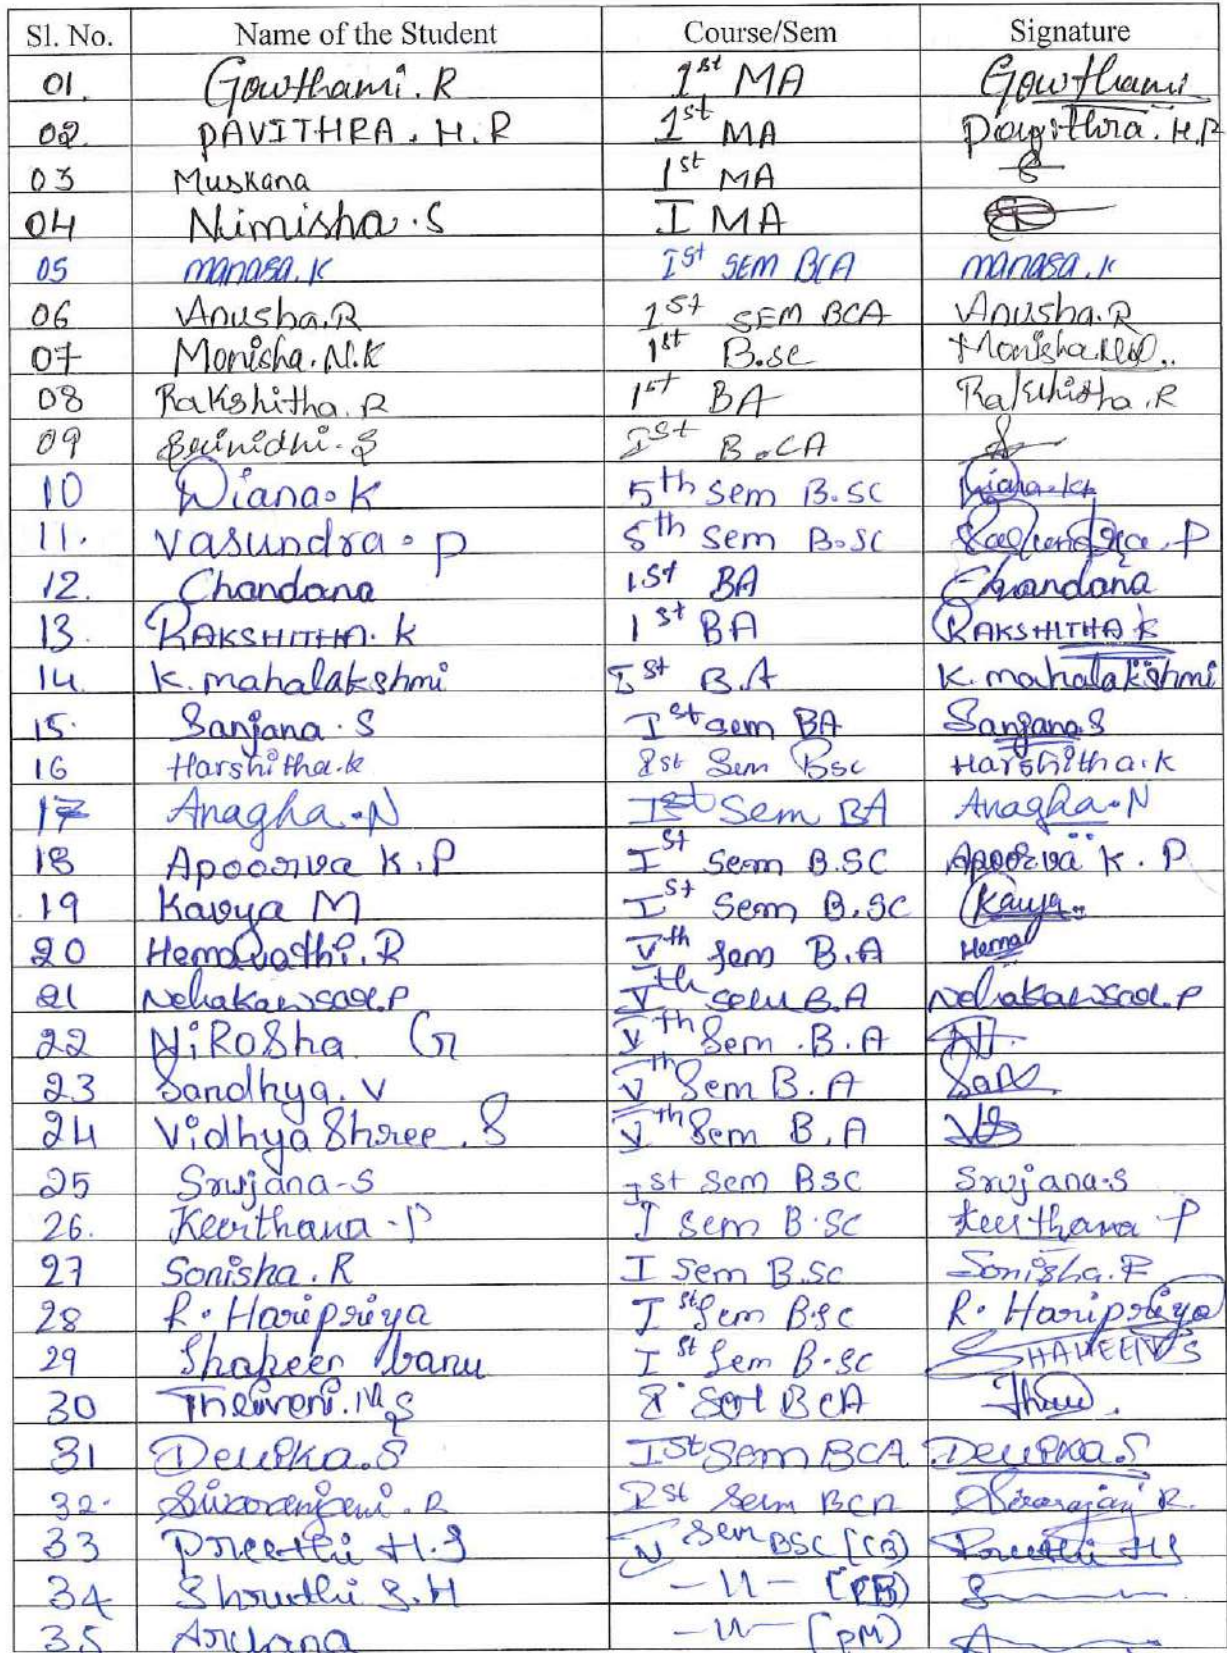 Sl. No. Name of the Student Course/Sem Signature
01. Gowthami. R 1st MA Gowthami
02. PAVITHRA. H.R 1st MA Pavithra. H.R
03 Muskana 1st MA
04 Nimisha. S I MA
05 manasa. K Ist SEM BCA manasa. K
06 Anusha. R 1st SEM BCA Anusha. R
07 Monisha. N.K 1st B.sc Monisha
08 Rakshitha. R 1st BA Rakshitha. R
09 Srinidhi. S Ist B.CA
10 Diana. K 5th sem B.SC Diana. K
11. Vasundra. P 5th sem B.SC Vasundra. P
12. Chandana 1st BA Chandana
13. RAKSHITHA. K 1st BA RAKSHITHA K
14. K. mahalakshmi Ist B.A K. mahalakshmi
15. Sanjana. S Ist sem BA Sanjana S
16 Harshitha. K Ist Sem Bsc Harshitha. K
17 Anagha. N Ist Sem BA Anagha. N
18 Apoorva K. P Ist Sem B.SC Apoorva K. P
19 Kavya M Ist Sem B.SC Kavya
20 Hemavathi. R Vth Sem B.A Hema
21 Nehakawsar. P Vth Sem B.A Nehakawsar. P
22 NiRosha G Vth Sem. B. A
23 Sandhya. V Vth Sem B. A San
24 Vidhya Shree. S Vth Sem B. A VS
25 Srujana-S Ist Sem BSC Srujana-S
26. Keerthana - P I sem B.SC Keerthana P
27 Sonisha. R I Sem B.SC Sonisha. R
28 R. Haripriya Ist Sem B.Sc R. Haripriya
29 Shaheen banu Ist Sem B.SC SHAHEEN
30 M S BCA
31 Devika. S Ist Sem BCA Devika. S
32. Sivaranjani. R Ist Sem BCA R.
33 Preethi H.S Sem BSC (CB) Preethi HS
34 Shruthi S. H - 11 -
35 Archana - 11 - (PM) A